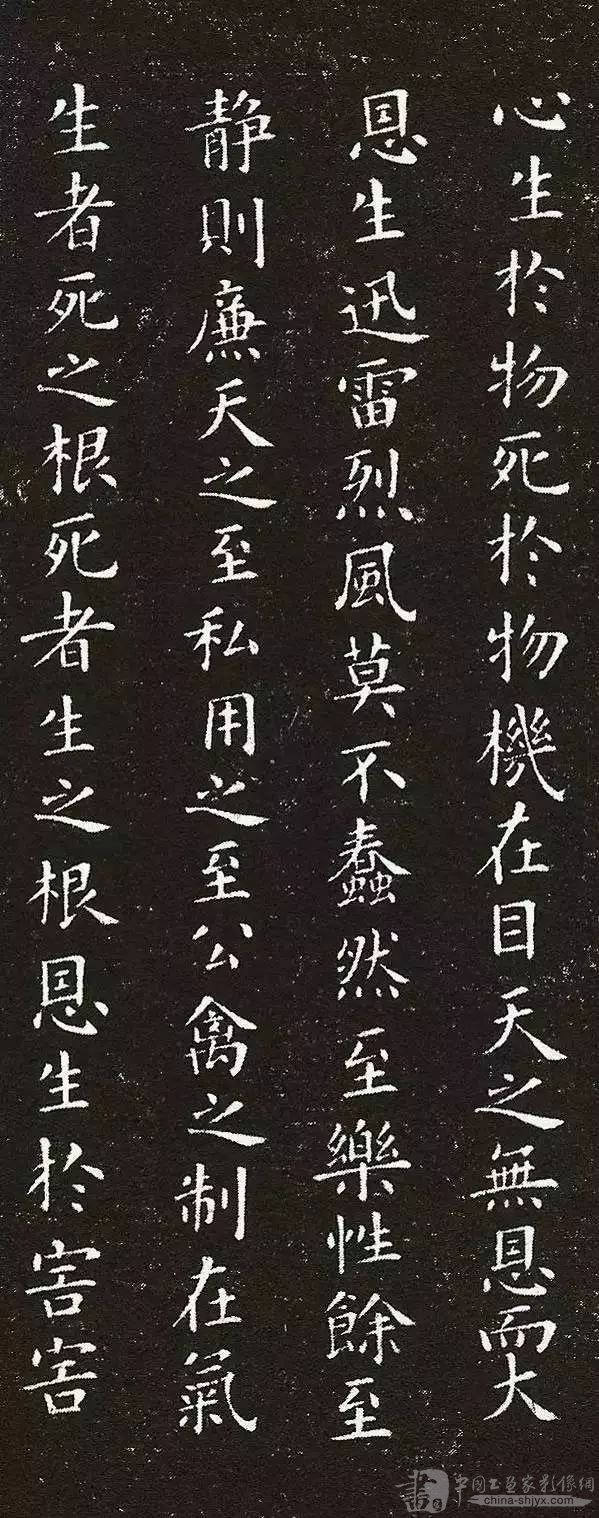 心生於物死於物機在目天之無恩而大
恩生迅雷烈風莫不蠢然至樂性餘至
静則廉天之至私用之至公禽之制在氣
生者死之根死者生之根恩生於害害
書 中国书画家影像網
china-shjyx.com